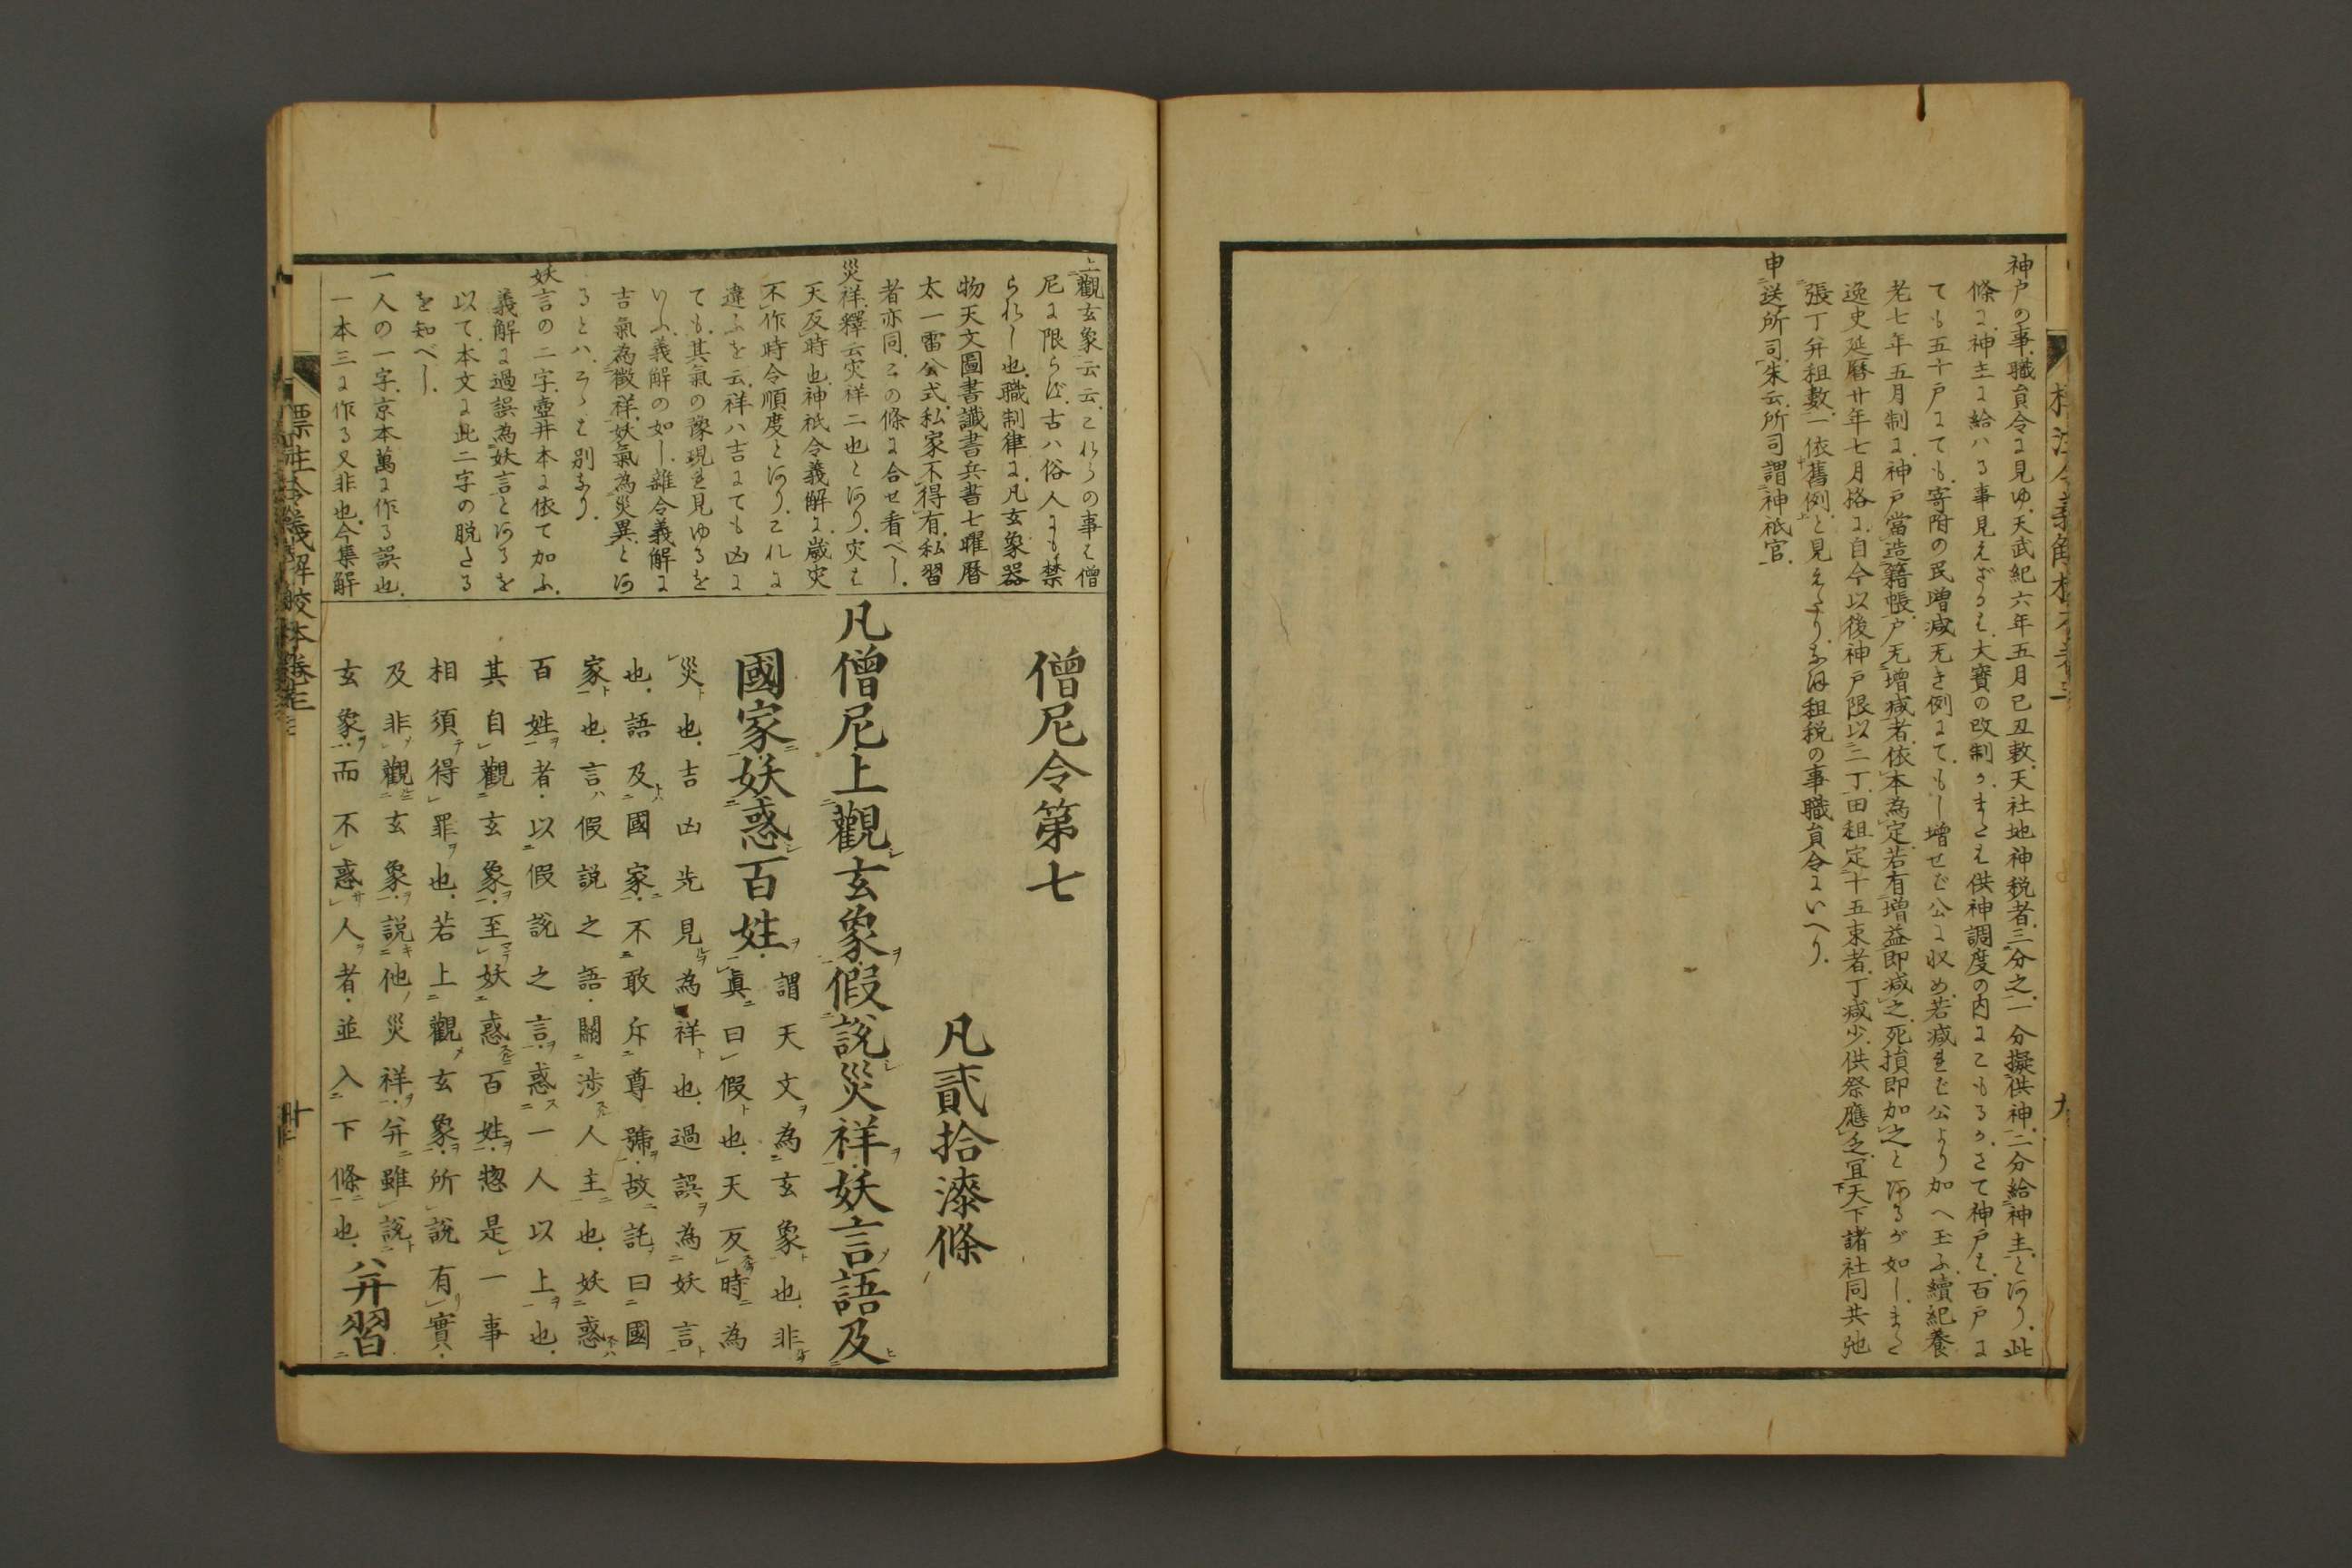 神戸の事、職員令に見ゆ、天武紀六年五月己丑敕、天社地神税者、三分之、一分擬供神、二分給神主、とあり、此
條に、神主に給ハる事見えざるハ、大寶の改制か、またハ供神調度の内にこもるか、さて神戸ハ、百戸に
ても五十戸にても、寄附の民増減无き例にて、もし増せば公に収め、若減れば公より加へ玉ふ、續紀養
老七年五月制に、神戸當造籍帳、戸无増減者、依本為定、若有増益即減之、死損即加之とあるが如し、また
逸史延暦廿年七月格に、自今以後神戸限以二丁、田租定十五束者、丁減少、供祭應乏、宜天下諸社同共弛
張丁并租數、一依舊例、と見えたり、なほ租税の事職員令にいへり、
申送所司、朱云、所司謂神祇官、
上觀玄象云云、これらの事ハ僧
尼に限らず、古ハ俗人にも禁
られし也、職制律に、凡玄象器
物天文圖書讖書兵書七曜暦
太一雷公式、私家不得有、私習
者亦同、この條に合せ看べし、
災祥、釋云、灾祥二也とあり、灾ハ
天反時也、神祇令義解に、歳灾
不作時令順度とあり、これに
違ふを云、祥ハ吉にても凶に
ても、其氣の豫現れ見ゆるを
いふ、義解の如し、雜令義解に
吉氣為徴祥、妖氣為災異、とあ
るとハ、こゝハ別なり、
妖言の二字、壺井本に依て加ふ、
義解に過誤為妖言とあるを
以て、本文に此二字の脱たる
を知べし、
一人の一字、京本萬に作る誤也、
一本三に作る又非也、今集解
僧尼令第七
凡貳拾漆條
凡僧尼上觀玄象、假説災祥、妖言語及
國家、妖惑百姓、
謂天文為玄象也、非
真曰假也、天反時為
災也、吉凶先見為祥也、過誤為妖言
也、語及國家、不敢斥尊號、故託曰國
家也、言假説之語、關渉人主也、妖惑
百姓者、以假説之言、惑一人以上也、
其自觀玄象、至妖惑百姓、惣是一事
相須得罪也、若上觀玄象、所説有實、
及非觀玄象、説他災祥、并雖説
玄象、而不惑人者、並入下條也、并習
標注令義解校本卷二